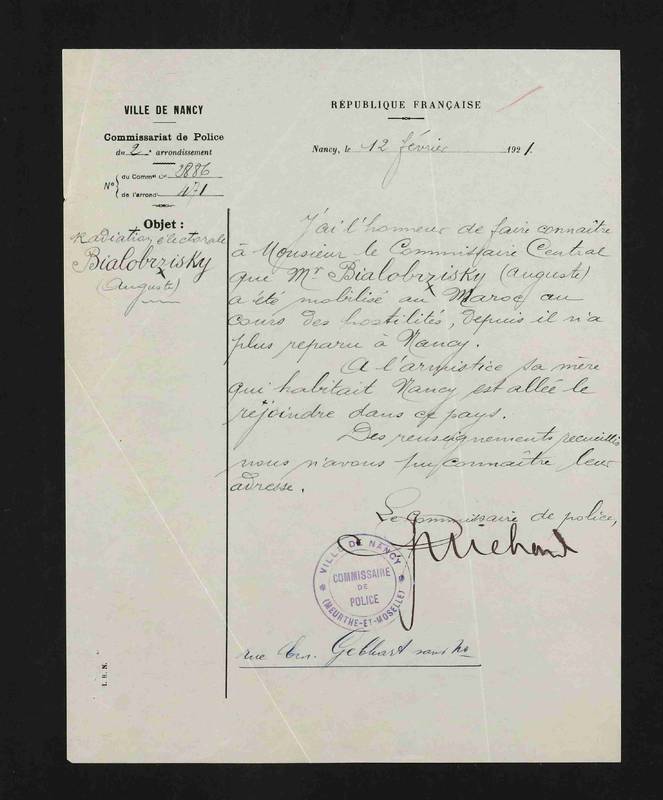 VILLE DE NANCY
Commissariat de Police
du 2e arrondissement
No du Commre Cal 2886
de l'arrondt 471
Objet :
Radiation électorale
Bialobrzisky
(Auguste)
RÉPUBLIQUE FRANÇAISE
Nancy, le 12 février 1921.
J'ai l'honneur de faire connaître
à Monsieur le Commissaire Central
que Mr Bialobrzisky (Auguste)
a été mobilisé au Maroc au
cours des hostilités, depuis il n'a
plus reparu à Nancy.
A l'armistice sa mère
qui habitait Nancy est allée le
rejoindre dans ce pays.
Des renseignements recueillis
nous n'avons pu connaître leur
adresse.
Le Commissaire de police,
VILLE DE NANCY
COMMISSAIRE
DE
POLICE
(MEURTHE-ET-MOSELLE)
rue Gebhart sans no
I. B. N.